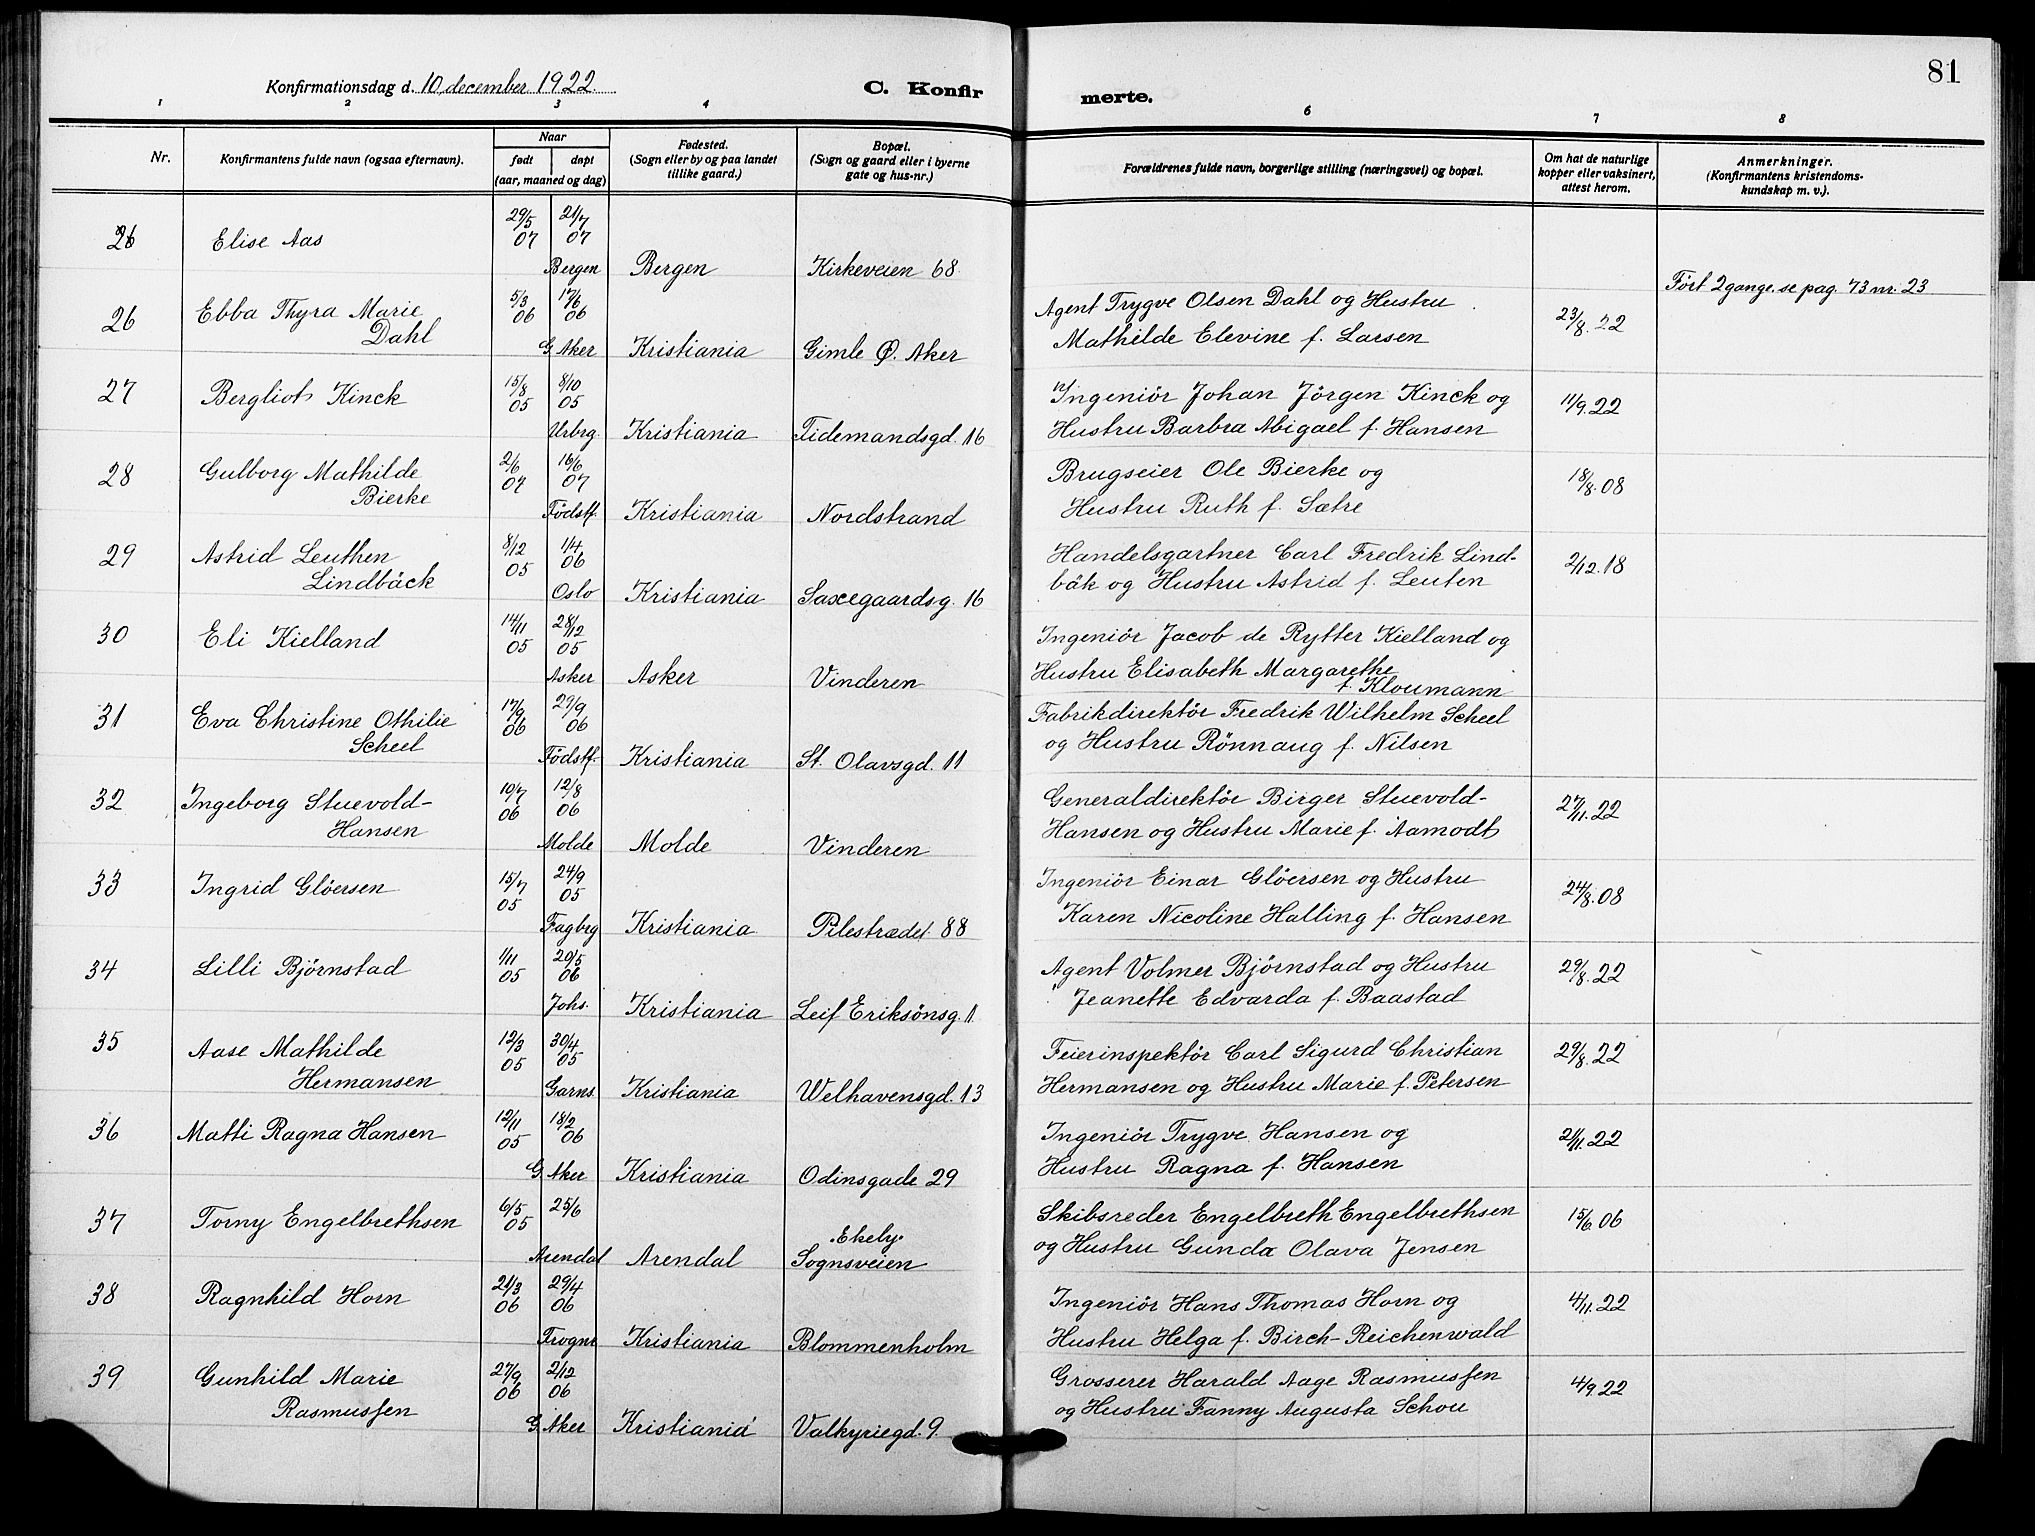 81
Konfirmationsdag d. 10 december 1922.
C. Konfirmerte.
1 2 3 4 6 7 8
Nr.
Konfirmantens fulde navn (ogsaa efternavn).
Naar
født
døpt
(aar, maaned og dag)
Fødested.
(Sogn eller by og paa landet
tillike gaard.)
Bopæl.
(Sogn og gaard eller i byerne
gate og hus-nr.)
Forældrenes fulde navn, borgerlige stilling (næringsvei) og bopæl.
Om hat de naturlige
kopper eller vaksinert,
attest herom.
Anmerkninger.
(Konfirmantens kristendoms-
kundskap m. v.).
26 Elise Aas 29/5 07 21/7 07
Bergen Bergen Kirkeveien 68
Ført 2 gange. se pag. 73 nr. 23
26 Ebba Thyra Marie 5/3 06 17/6 06 Agent Trygve Olsen Dahl og Hustru 23/8.22
Dahl G. Aker Kristiania Gimle Ø. Aker Mathilde Elevine f. Larsen
27 Bergliot Kinck 15/8 05 8/10 05 Ingeniör Johan Jörgen Kinck og 11/9.22
Urbrg. Kristiania Tidemandsgd. 16 Hustru Barbra Abigael f. Hansen
28 Gulborg Mathilde 2/6 07 16/6 07 Brugseier Ole Bierke og 18/8.08
Bierke Födstf. Kristiania Nordstrand Hustru Ruth f. Sætre
29 Astrid Leuthen 8/12 05 1/4 06 Handelsgartner Carl Fredrik Lind- 2/12.18
Lindbäck Oslo Kristiania Saxegaardsg. 16 båk og Hustru Astrid f. Leuten
30 Eli Kielland 14/11 05 28/12 05 Ingeniör Jacob de Rytter Kielland og
Asker Asker Vinderen Hustru Elisabeth Margarethe
f. Kloumann
31 Eva Christine Othilie 17/9 06 29/9 06 Fabrikdirektör Fredrik Wilhelm Scheel
Scheel Födstf. Kristiania St. Olavsgd. 11 og Hustru Rönnaug f. Nilsen
32 Ingeborg Stuevold- 10/7 06 12/8 06 Generaldirektör Birger Stuevold- 27/11.22
Hansen Molde Molde Vinderen Hansen og Hustru Marie f. Aamodt
33 Ingrid Glöersen 15/7 05 24/9 05 Ingeniör Einar Glöersen og Hustru 24/8.08
Fagbrg Kristiania Pilestrædet 88 Karen Nicoline Halling f. Hansen
34 Lilli Björnstad 1/11 05 20/5 06 Agent Volmer Björnstad og Hustru 29/8.22
Johs. Kristiania Leif Eriksönsg. 1 Jeanette Edvarda f. Baastad
35 Aase Mathilde 12/3 05 30/4 05 Feierinspektör Carl Sigurd Christian 29/8.22
Hermansen Garns. Kristiania Welhavensgd. 13 Hermansen og Hustru Marie f. Petersen
36 Matti Ragna Hansen 12/11 05 18/2 06 Ingeniör Trygve Hansen og 21/11.22
G. Aker Kristiania Odinsgade 29 Hustru Ragna f. Hansen
37 Torny Engelbrethsen 6/5 05 25/6 Skibsreder Engelbreth Engelbrethsen 15/6.06
Ekely
Arendal Arendal Sognsveien og Hustru Gunda Olava Jensen
38 Ragnhild Horn 21/3 06 29/4 06 Ingeniör Hans Thomas Horn og 4/11.22
Frogne Kristiania Blommenholm Hustru Helga f. Birch-Reichenwald
39 Gunhild Marie 27/9 06 2/12 06 Grosserer Harald Aage Rasmussen 4/9.22
Rasmussen G. Aker Kristiania Valkyriegd. 9. og Hustru Fanny Augusta Schou